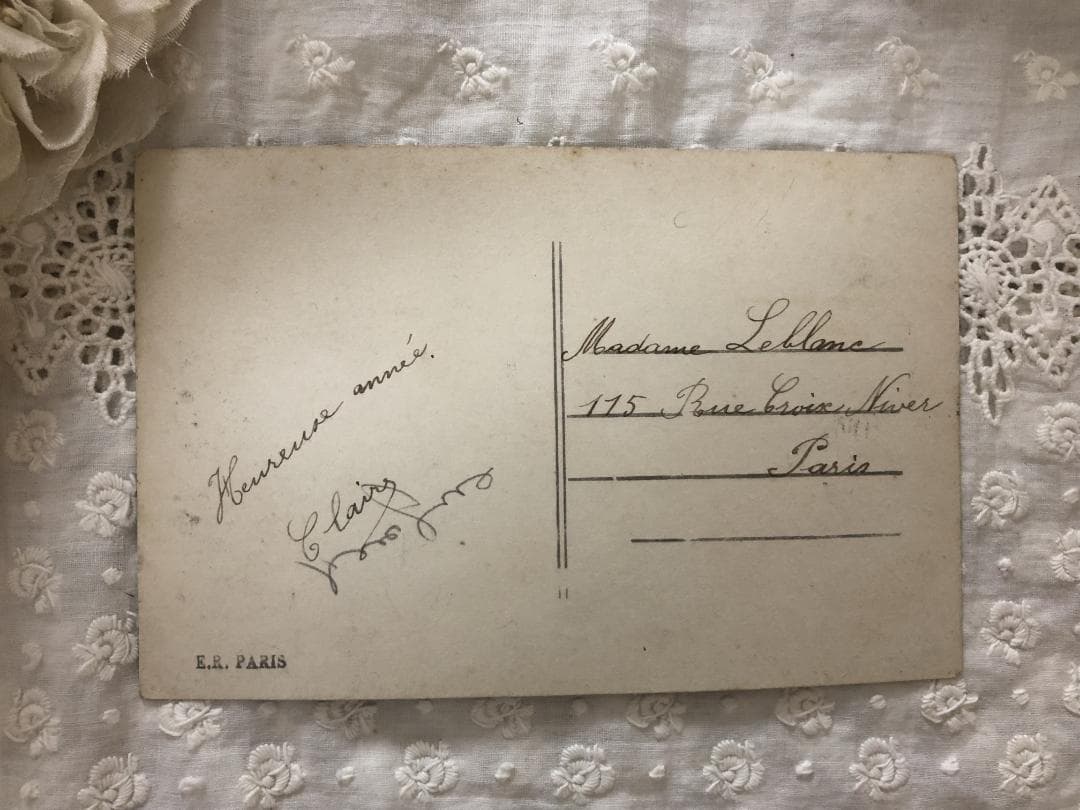 Heureuse année.
Claire
E.R. PARIS
Madame Leblanc
115 Rue Croix Niver
Paris